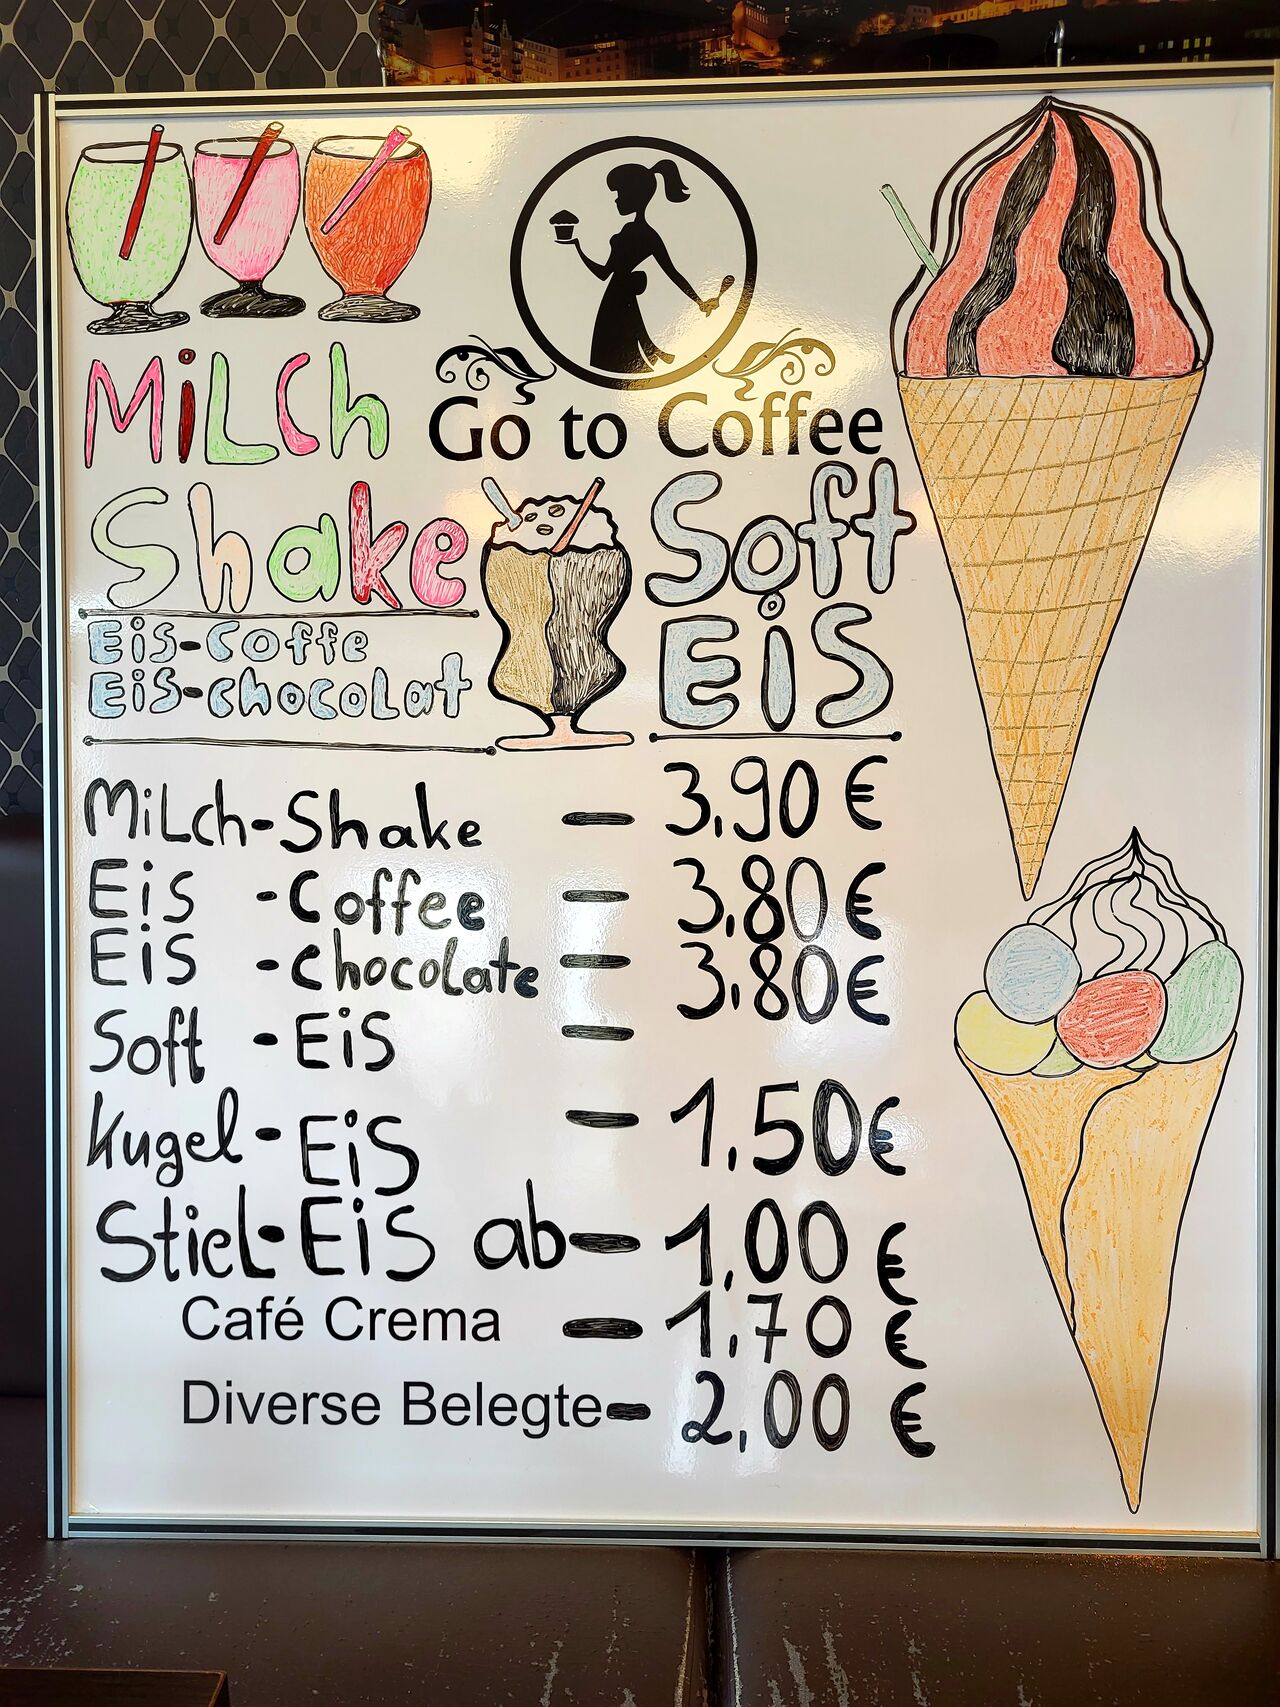 Go to Coffee
MiLCh
Shake
Eis-Coffe
Eis-chocoLat
Soft
EiS
MiLch-Shake — 3,90 €
Eis - Coffee — 3,80 €
Eis - ChocoLate — 3,80 €
Soft - EiS —
Kugel - EiS — 1,50 €
StieL-EiS ab — 1,00 €
Café Crema — 1,70 €
Diverse Belegte - 2,00 €